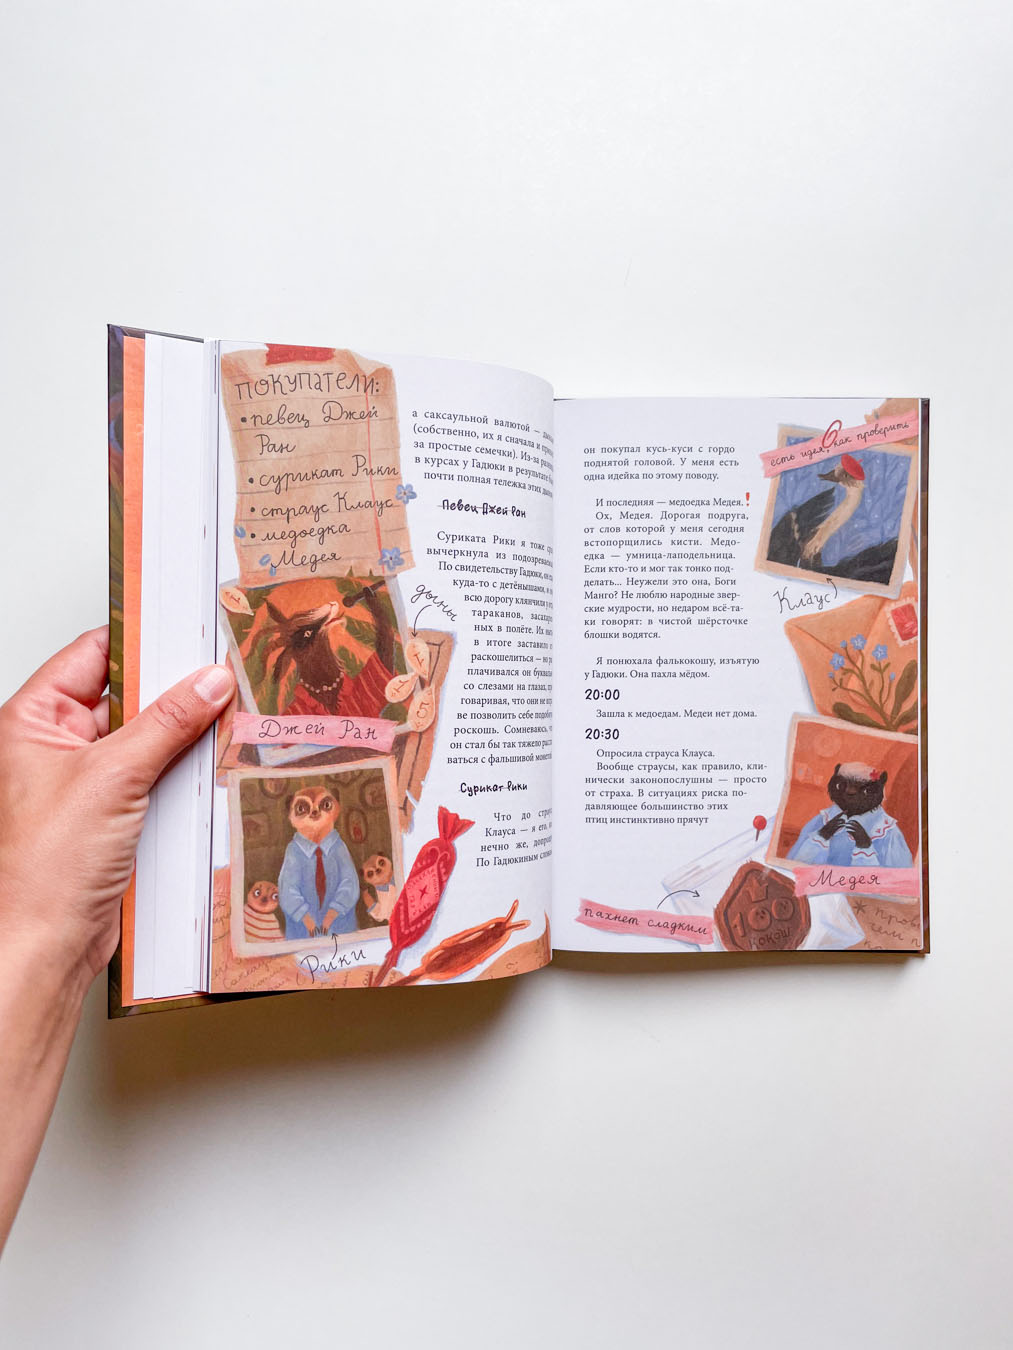 ПОКУПАТЕЛИ:
• певец Джей
Ран
• сурикат Рики
• страус Клаус
• медоедка
Медея
а саксаульной валютой —
(собственно, их я сначала и
за простые семечки). Из-за
в курсах у Гадюки в результате
почти полная тележка этих
Певец Джей Ран
Суриката Рики я тоже
вычеркнула из
По свидетельству Гадюки, он
куда-то с детёнышами, и
всю дорогу клянчили у
тараканов,
ных в полёте. Их
в итоге заставило
раскошелиться — но
плачивался он
со слезами на глазах,
говаривая, что они не
ве позволить себе
роскошь. Сомневаюсь,
он стал бы так тяжело
ваться с фальшивой
Сурикат Рики
Что до
Клауса — я его,
нечно же,
По Гадюкиным
дыны
1
1
5
Джей Ран
Рики
он покупал кусь-куси с гордо
поднятой головой. У меня есть
одна идейка по этому поводу.
И последняя — медоедка Медея.!
Ох, Медея. Дорогая подруга,
от слов которой у меня сегодня
встопорщились кисти. Медо-
едка — умница-лаподельница.
Если кто-то и мог так тонко под-
делать... Неужели это она, Боги
Манго? Не люблю народные звер-
ские мудрости, но недаром всё-та-
ки говорят: в чистой шёрсточке
блошки водятся.
Я понюхала фалькокошу, изъятую
у Гадюки. Она пахла мёдом.
20:00
Зашла к медоедам. Медеи нет дома.
20:30
Опросила страуса Клауса.
Вообще страусы, как правило, кли-
нически законопослушны — просто
от страха. В ситуациях риска по-
давляющее большинство этих
птиц инстинктивно прячут
есть идея, как проверить
Клаус
Медея
пахнет сладким
100
КОКОШ